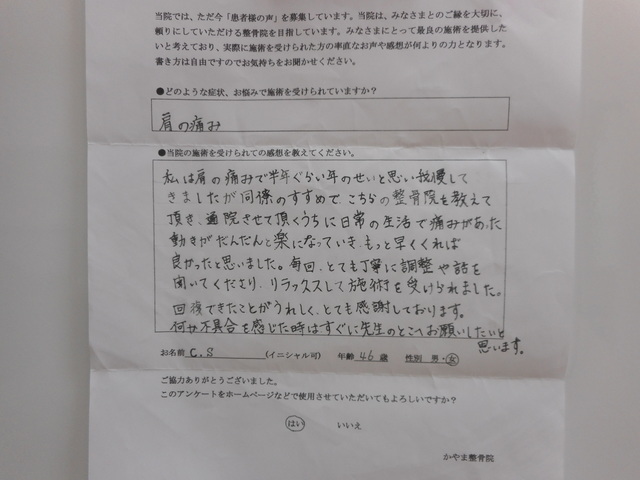 当院では、ただ今「患者様の声」を募集しています。当院は、みなさまとのご縁を大切に、
頼りにしていただける整骨院を目指しています。みなさまにとって最良の施術を提供した
いと考えており、実際に施術を受けられた方の率直なお声や感想が何よりの力となります。
書き方は自由ですのでお気持ちをお聞かせください。
●どのような症状、お悩みで施術を受けられていますか？
肩の痛み
●当院の施術を受けられての感想を教えてください。
私は肩の痛みで半年ぐらい年のせいと思い我慢して
きましたが同僚のすすめで、こちらの整骨院を教えて
頂き、通院させて頂くうちに日常の生活で痛みがあった
動きがだんだんと楽になっていき、もっと早くくれば
良かったと思いました。毎回、とても丁寧に調整や話を
聞いてくださり、リラックスして施術を受けられました。
回復できたことがうれしく、とても感謝しております。
何か不具合を感じた時はすぐに先生のとこへお願いしたいと
思います。
お名前 C.S （イニシャル可） 年齢 46 歳 性別 男・女
ご協力ありがとうございました。
このアンケートをホームページなどで使用させていただいてもよろしいですか？
はい いいえ
かやま整骨院